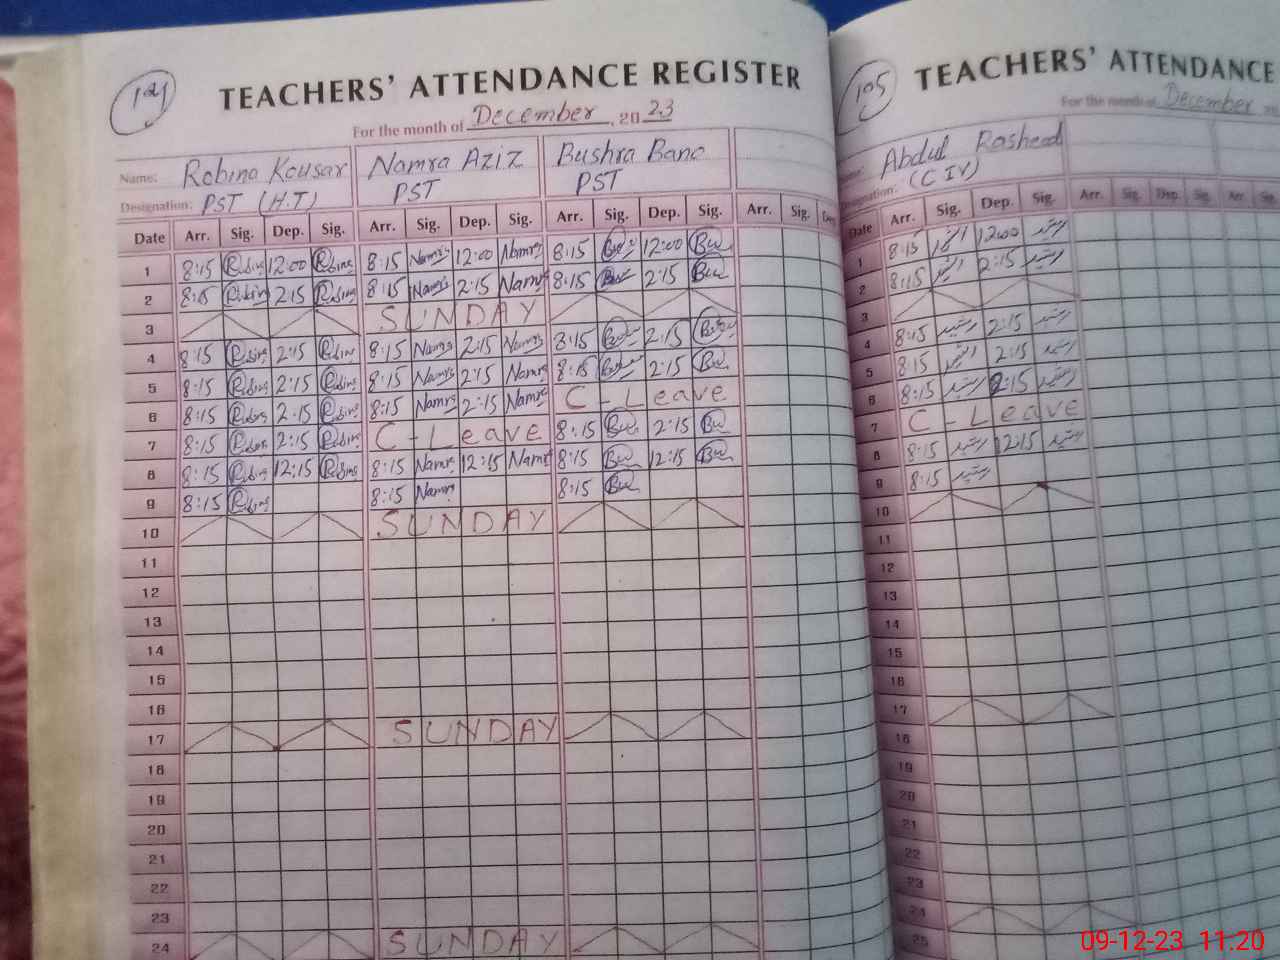 124
TEACHERS' ATTENDANCE REGISTER
For the month of December, 2023
Name: Robina Kousar Namra Aziz Bushra Bano
Designation: PST (H.T) PST PST
Date Arr. Sig. Dep. Sig. Arr. Sig. Dep. Sig. Arr. Sig. Dep. Sig. Arr. Sig. Dep
1 8:15 Robina 12:00 Robina 8:15 Namra 12:00 Namra 8:15 12:00
2 8:15 Robina 2:15 Robina 8:15 Namra 2:15 Namra 8:15 2:15
3 SUNDAY
4 8:15 Robina 2:15 Robina 8:15 Namra 2:15 Namra 8:15 2:15
5 8:15 Robina 2:15 Robina 8:15 Namra 2:15 Namra 8:15 2:15
6 8:15 Robina 2:15 Robina 8:15 Namra 2:15 Namra C-Leave
7 8:15 Robina 2:15 Robina C-Leave 8:15 2:15
8 8:15 Robina 12:15 Robina 8:15 Namra 12:15 Namra 8:15 12:15
9 8:15 Robina 8:15 Namra 8:15
10 SUNDAY
11
12
13
14
15
16
17 SUNDAY
18
19
20
21
22
23
24 SUNDAY
105
TEACHERS' ATTENDANCE
For the month of December
Name: Abdul Rasheed
Designation: (C IV)
Date Arr. Sig. Dep. Sig. Arr. Sig. Dep. Sig. Arr. Sig.
1 8:15 12:00 رشید
2 8:15 2:15 رشید
3
4 8:15 رشید 2:15 رشید
5 8:15 رشید 2:15 رشید
6 8:15 رشید 2:15 رشید
7 C-Leave
8 8:15 رشید 12:15 رشید
9 8:15 رشید
10
11
12
13
14
15
16
17
18
19
20
21
22
23
24
25
09-12-23 11:20